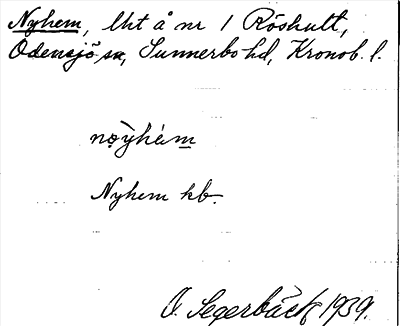 Nyhem, lht å nr 1 Röshult,
Odensjö sn, Sunnerbo hd, Kronob. l.
nø̀yhém
Nyhem kb.
O. Segerbäck 1939.